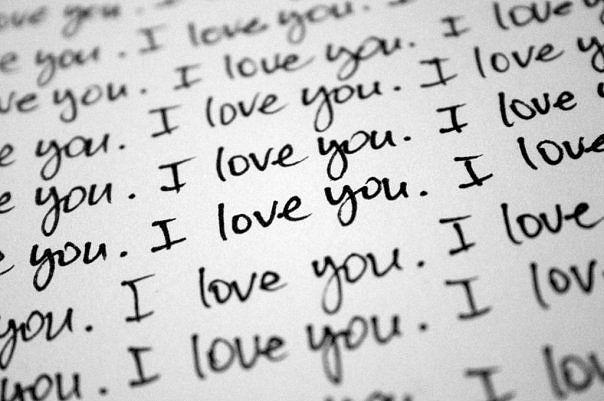 ove you.
e you. I love you. I
ve you. I love you. I love y
e you. I love you. I love y
e you. I love you. I love
e you. I love you. I love
you. I love you. I love
you. I love you. I lov
I lov